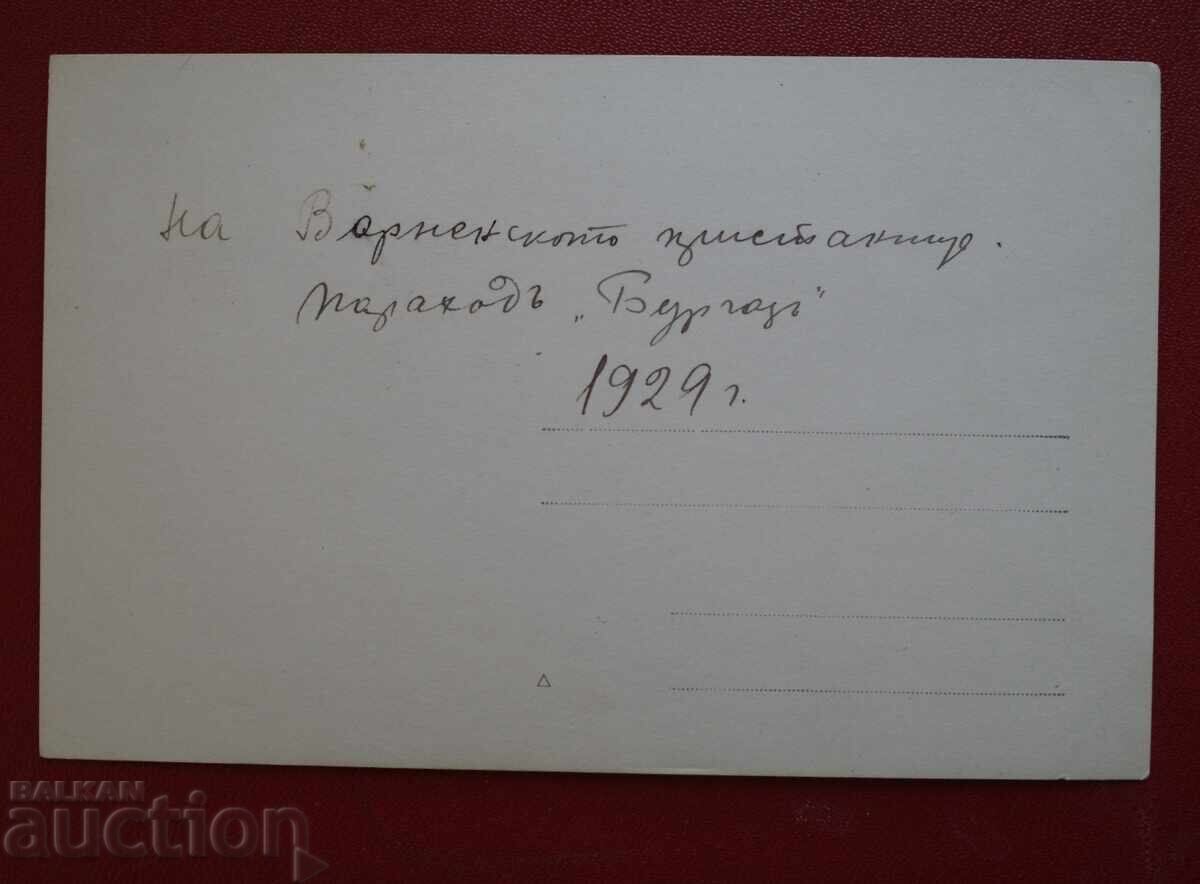 На Варненското пристанище.
Параходъ „Бургазъ"
1929 г.
BALKAN
auction